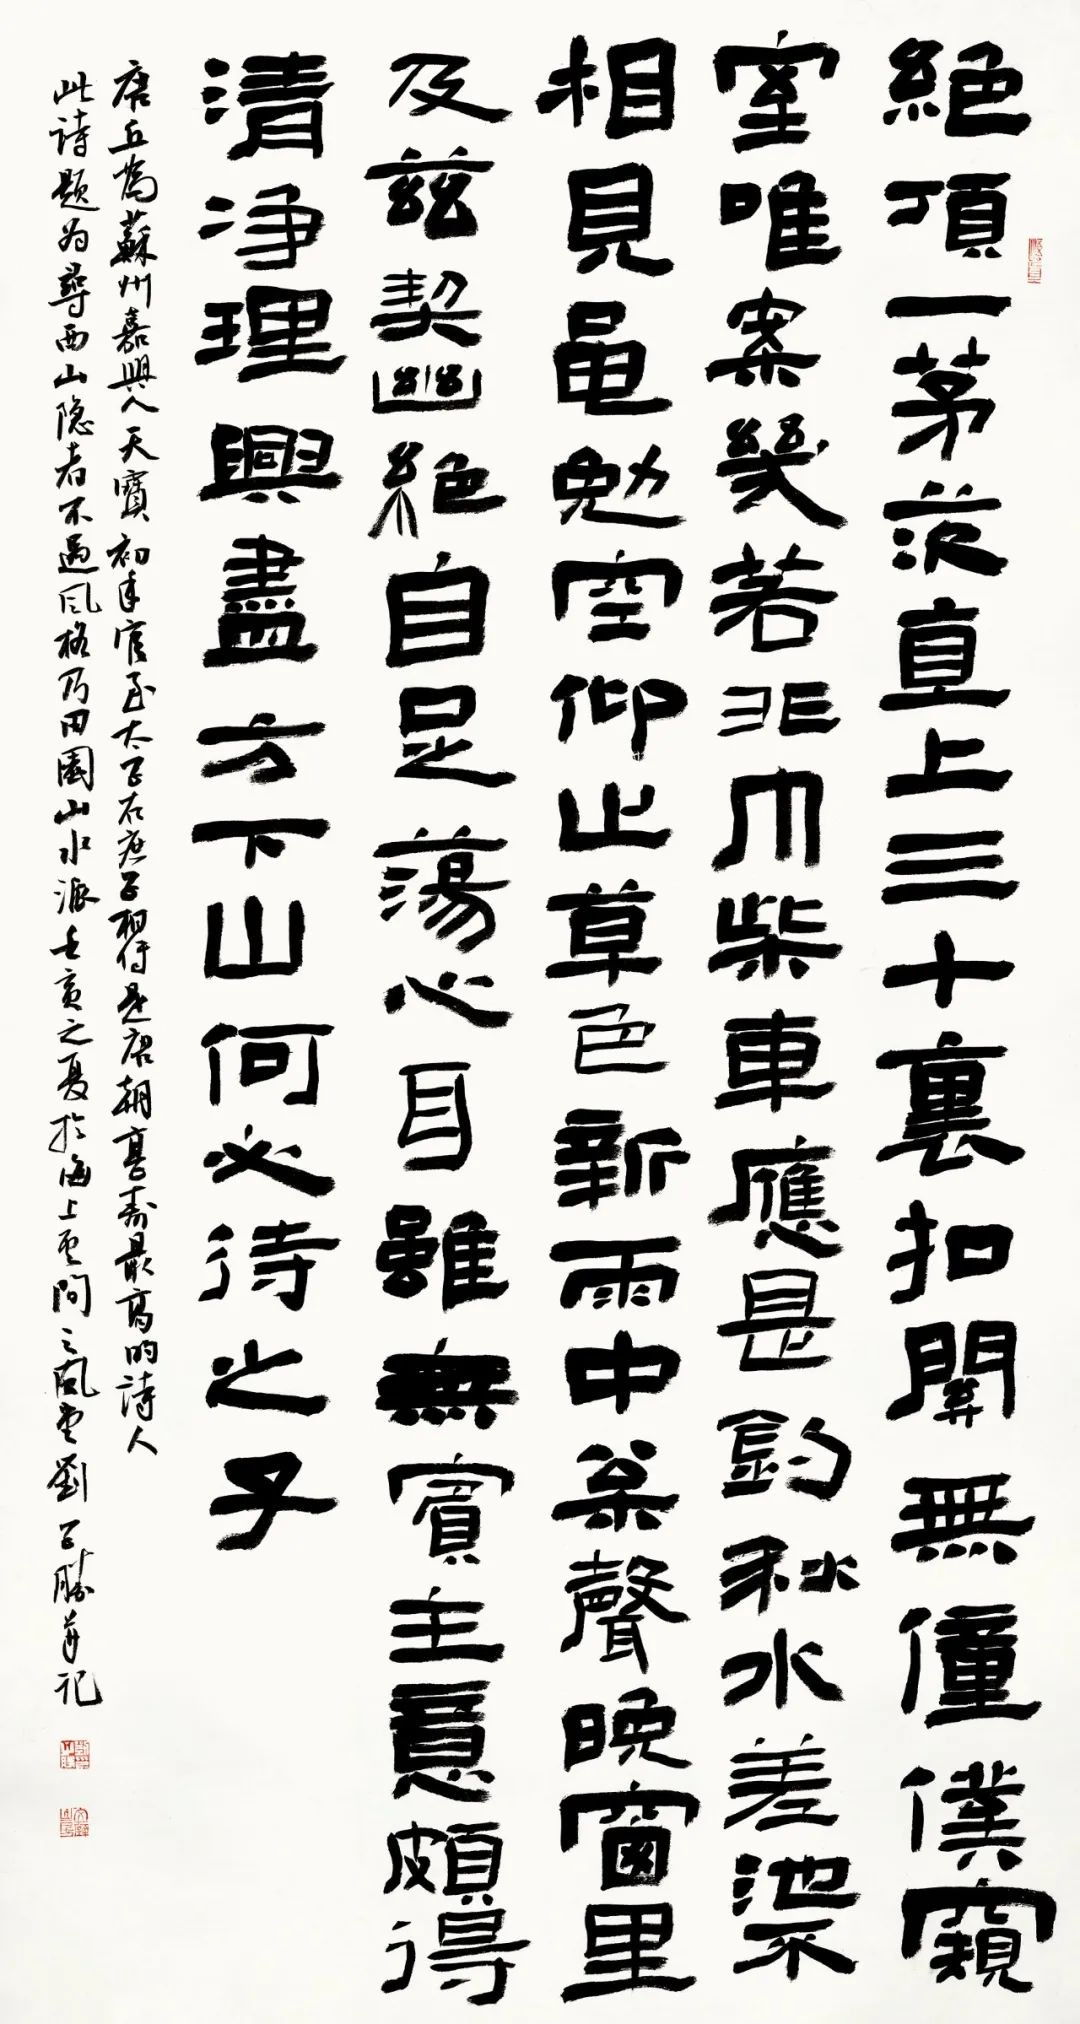 絕頂一茅茨直上三十裏扣關無僮僕窺
室唯案幾若非巾柴車應是釣秋水差池不
相見黽勉空仰止草色新雨中枀聲晚窗里
及茲契幽絕自足蕩心目雖無賓主意頗得
清净理興盡方下山何必待之子
唐丘為蘇州嘉興人天寶初年官至太子右庶子相傳是唐朝享壽最高的詩人
此诗题为尋西山隐者不遇风格乃田園山水派壬寅之夏於海上雲間之風堂劉勝并记